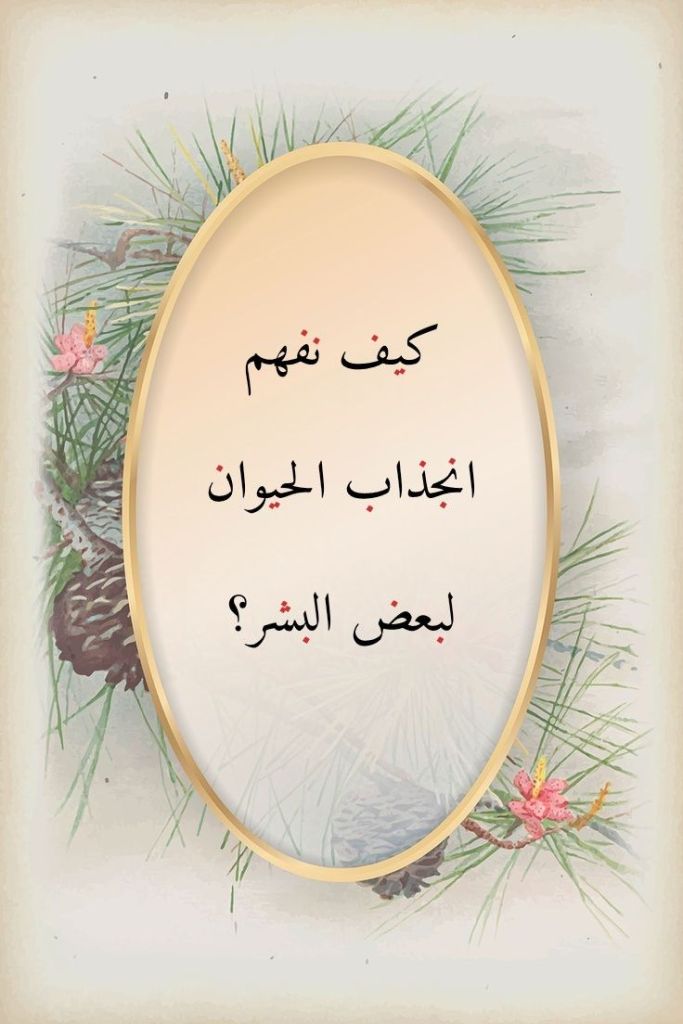 كيف نفهم
انجذاب الحيوان
لبعض البشر؟